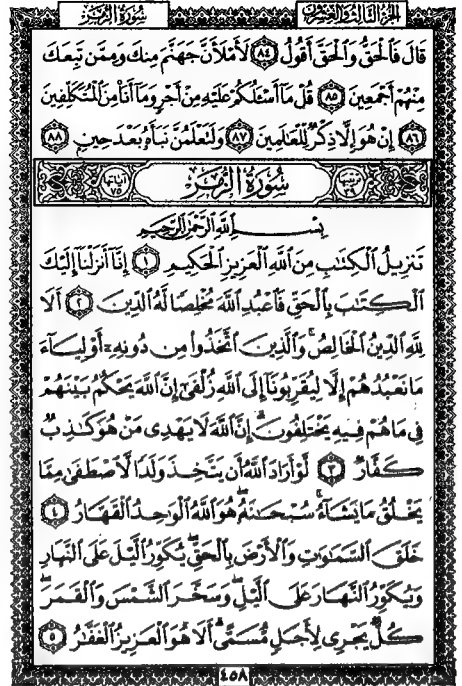 الجزء الثالث والعشرون
سُورَةُ الزُّمَر
قَالَ فَٱلْحَقُّ وَٱلْحَقَّ أَقُولُ ٨٤ لَأَمْلَأَنَّ جَهَنَّمَ مِنكَ وَمِمَّن تَبِعَكَ
مِنْهُمْ أَجْمَعِينَ ٨٥ قُلْ مَآ أَسْـَٔلُكُمْ عَلَيْهِ مِنْ أَجْرٍ وَمَآ أَنَا۠ مِنَ ٱلْمُتَكَلِّفِينَ
٨٦ إِنْ هُوَ إِلَّا ذِكْرٌ لِّلْعَـٰلَمِينَ ٨٧ وَلَتَعْلَمُنَّ نَبَأَهُۥ بَعْدَ حِينٍۭ ٨٨
ترتيبها ٣٩ سُورَةُ الزُّمَر آياتها ٧٥
بِسْمِ ٱللَّهِ ٱلرَّحْمَـٰنِ ٱلرَّحِيمِ
تَنزِيلُ ٱلْكِتَـٰبِ مِنَ ٱللَّهِ ٱلْعَزِيزِ ٱلْحَكِيمِ ١ إِنَّآ أَنزَلْنَآ إِلَيْكَ
ٱلْكِتَـٰبَ بِٱلْحَقِّ فَٱعْبُدِ ٱللَّهَ مُخْلِصًا لَّهُ ٱلدِّينَ ٢ أَلَا
لِلَّهِ ٱلدِّينُ ٱلْخَالِصُ ۚ وَٱلَّذِينَ ٱتَّخَذُوا۟ مِن دُونِهِۦٓ أَوْلِيَآءَ
مَا نَعْبُدُهُمْ إِلَّا لِيُقَرِّبُونَآ إِلَى ٱللَّهِ زُلْفَىٰٓ إِنَّ ٱللَّهَ يَحْكُمُ بَيْنَهُمْ
فِى مَا هُمْ فِيهِ يَخْتَلِفُونَ ۗ إِنَّ ٱللَّهَ لَا يَهْدِى مَنْ هُوَ كَـٰذِبٌ
كَفَّارٌ ٣ لَّوْ أَرَادَ ٱللَّهُ أَن يَتَّخِذَ وَلَدًا لَّٱصْطَفَىٰ مِمَّا
يَخْلُقُ مَا يَشَآءُ ۚ سُبْحَـٰنَهُۥ ۖ هُوَ ٱللَّهُ ٱلْوَٰحِدُ ٱلْقَهَّارُ ٤
خَلَقَ ٱلسَّمَـٰوَٰتِ وَٱلْأَرْضَ بِٱلْحَقِّ ۖ يُكَوِّرُ ٱلَّيْلَ عَلَى ٱلنَّهَارِ
وَيُكَوِّرُ ٱلنَّهَارَ عَلَى ٱلَّيْلِ ۖ وَسَخَّرَ ٱلشَّمْسَ وَٱلْقَمَرَ ۖ
كُلٌّ يَجْرِى لِأَجَلٍ مُّسَمًّى ۗ أَلَا هُوَ ٱلْعَزِيزُ ٱلْغَفَّـٰرُ ٥
٤٥٨